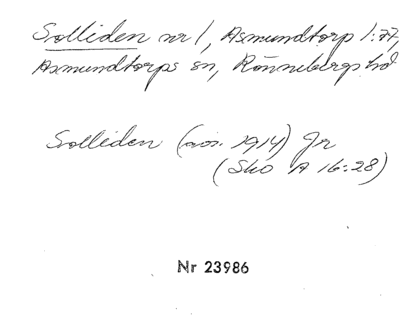 Solliden nr 1, Asmundtorp 1:77,
Asmundtorps sn, Rönnebergs hd
Solliden (avs. 1914) Jr
(Sko A 16:28)
Nr 23986